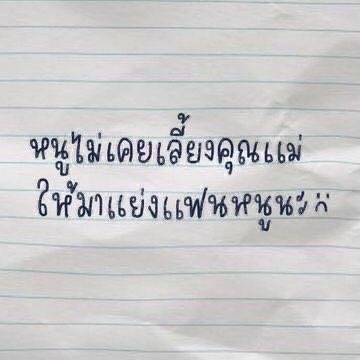 หนูไม่เคยเลี้ยงคุณแม่
ให้มาแย่งแฟนหนูนะ ૪